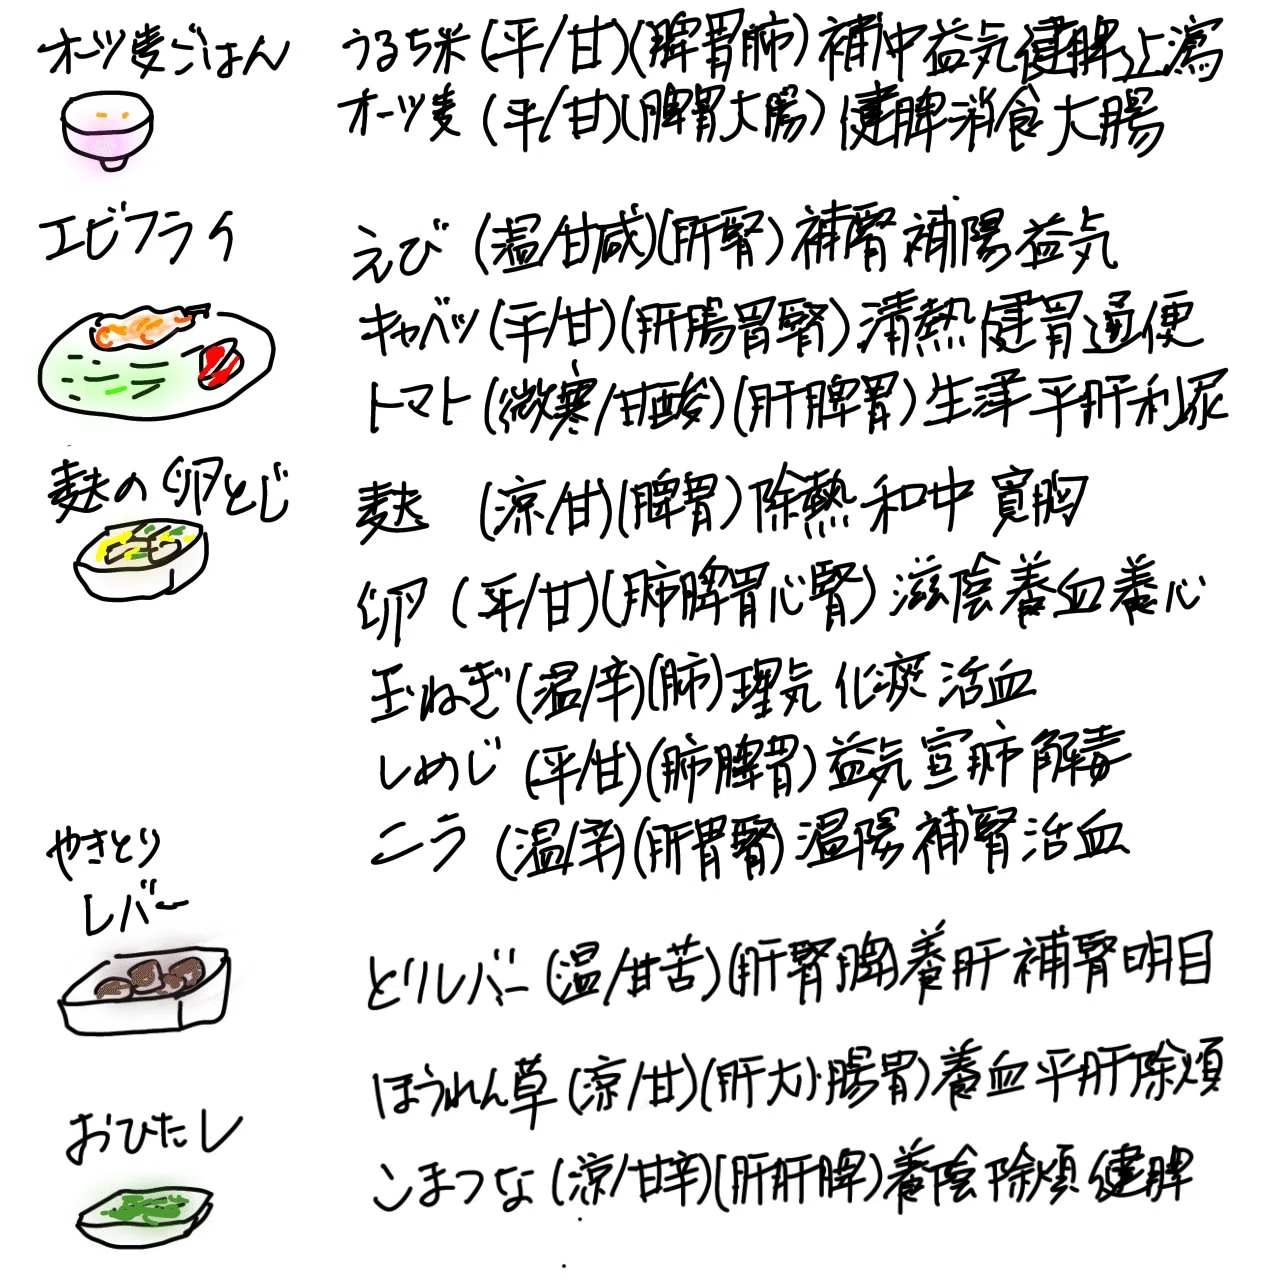 オーツ麦ごはん
うるち米(平/甘)(脾胃肺)補中益気健脾止瀉
オーツ麦(平/甘)(脾胃大腸)健脾消食大腸
エビフライ
えび(温/甘咸)(肝腎)補腎補陽益気
キャベツ(平/甘)(肝腸胃腎)清熱健胃通便
トマト(微寒/甘酸)(肝脾胃)生津平肝利尿
麩の卵とじ
麩(涼/甘)(脾胃)除熱和中寛胸
卵(平/甘)(肺脾胃心腎)滋陰養血養心
玉ねぎ(温/辛)(肺)理気化痰活血
しめじ(平/甘)(肺脾胃)益気宣肺解毒
ニラ(温/辛)(肝胃腎)温陽補腎活血
やきとり
レバー
とりレバー(温/甘苦)(肝腎脾)養肝補腎明目
ほうれん草(涼/甘)(肝大小腸胃)養血平肝除煩
おひたし
こまつな(涼/甘辛)(肝肝脾)養陰除煩健脾